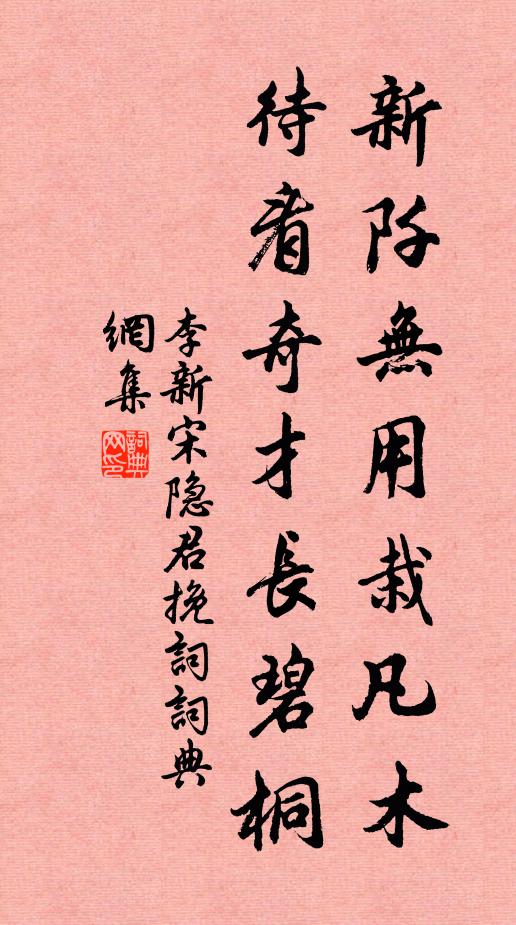 新阡無用栽凡木
待看奇才長碧桐
李新宋隐君挽詞詞典
網集
詞典网印